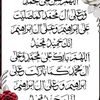 اللهم صل على محمد
وعلى آل محمد كما صليت
على إبراهيم وعلى آل إبراهيم
إنك حميد مجيد
اللهم بارك على محمد وعلى
آل محمد كما باركت على
إبراهيم وعلى آل إبراهيم
إنك حميد مجيد